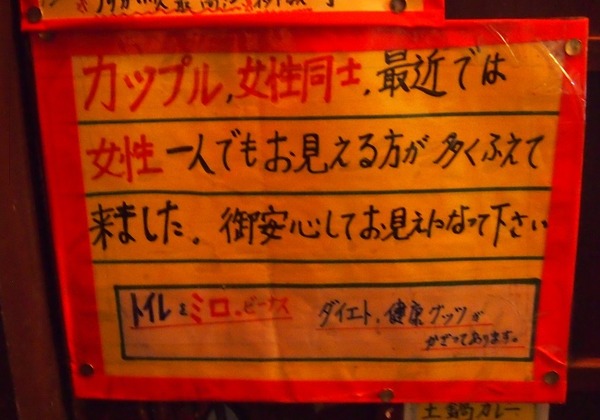 カップル,女性同士,最近では
女性一人でもお見える方が多くふえて
来ました。御安心してお見えになって下さい
トイレをミロ。ビーナス
ダイエット、健康グッツが
かざってあります。
土鍋カレー